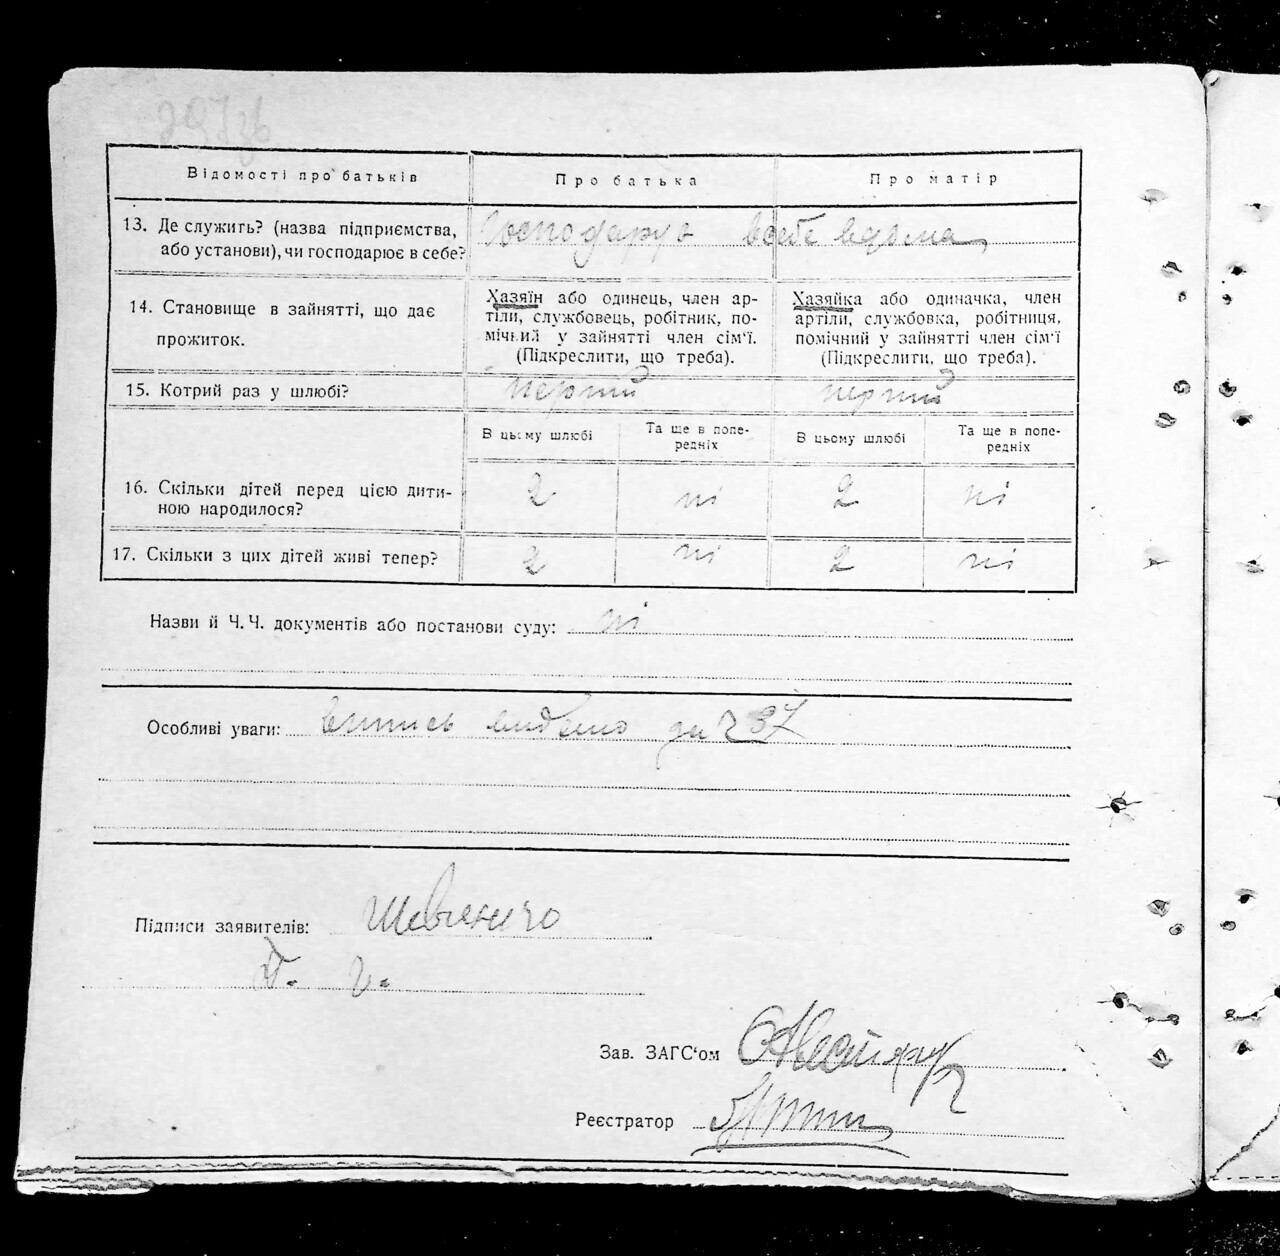 297зв
Відомості про батьків
Про батька
Про матір
13. Де служить? (назва підприємства,
або установи), чи господарює в себе?
Господарує в себе вдома
14. Становище в зайнятті, що дає
прожиток.
Хазяїн або одинець, член ар-
тіли, службовець, робітник, по-
мічний у зайнятті член сім'ї.
(Підкреслити, що треба).
Хазяйка або одиначка, член
артіли, службовка, робітниця,
помічний у зайнятті член сім'ї
(Підкреслити, що треба).
15. Котрий раз у шлюбі?
перший
перший
В цьому шлюбі
Та ще в попе-
редніх
В цьому шлюбі
Та ще в попе-
редніх
16. Скільки дітей перед цією дити-
ною народилося?
2
ні
2
ні
17. Скільки з цих дітей живі тепер?
2
ні
2
ні
Назви й Ч.Ч. документів або постанови суду: ні
Особливі уваги: випись видано за № 237
Підписи заявителів: Шевченко
Зав. ЗАГС'ом
Реєстратор